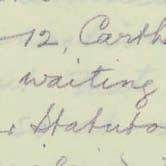 12, Carth
waiting
Statuto